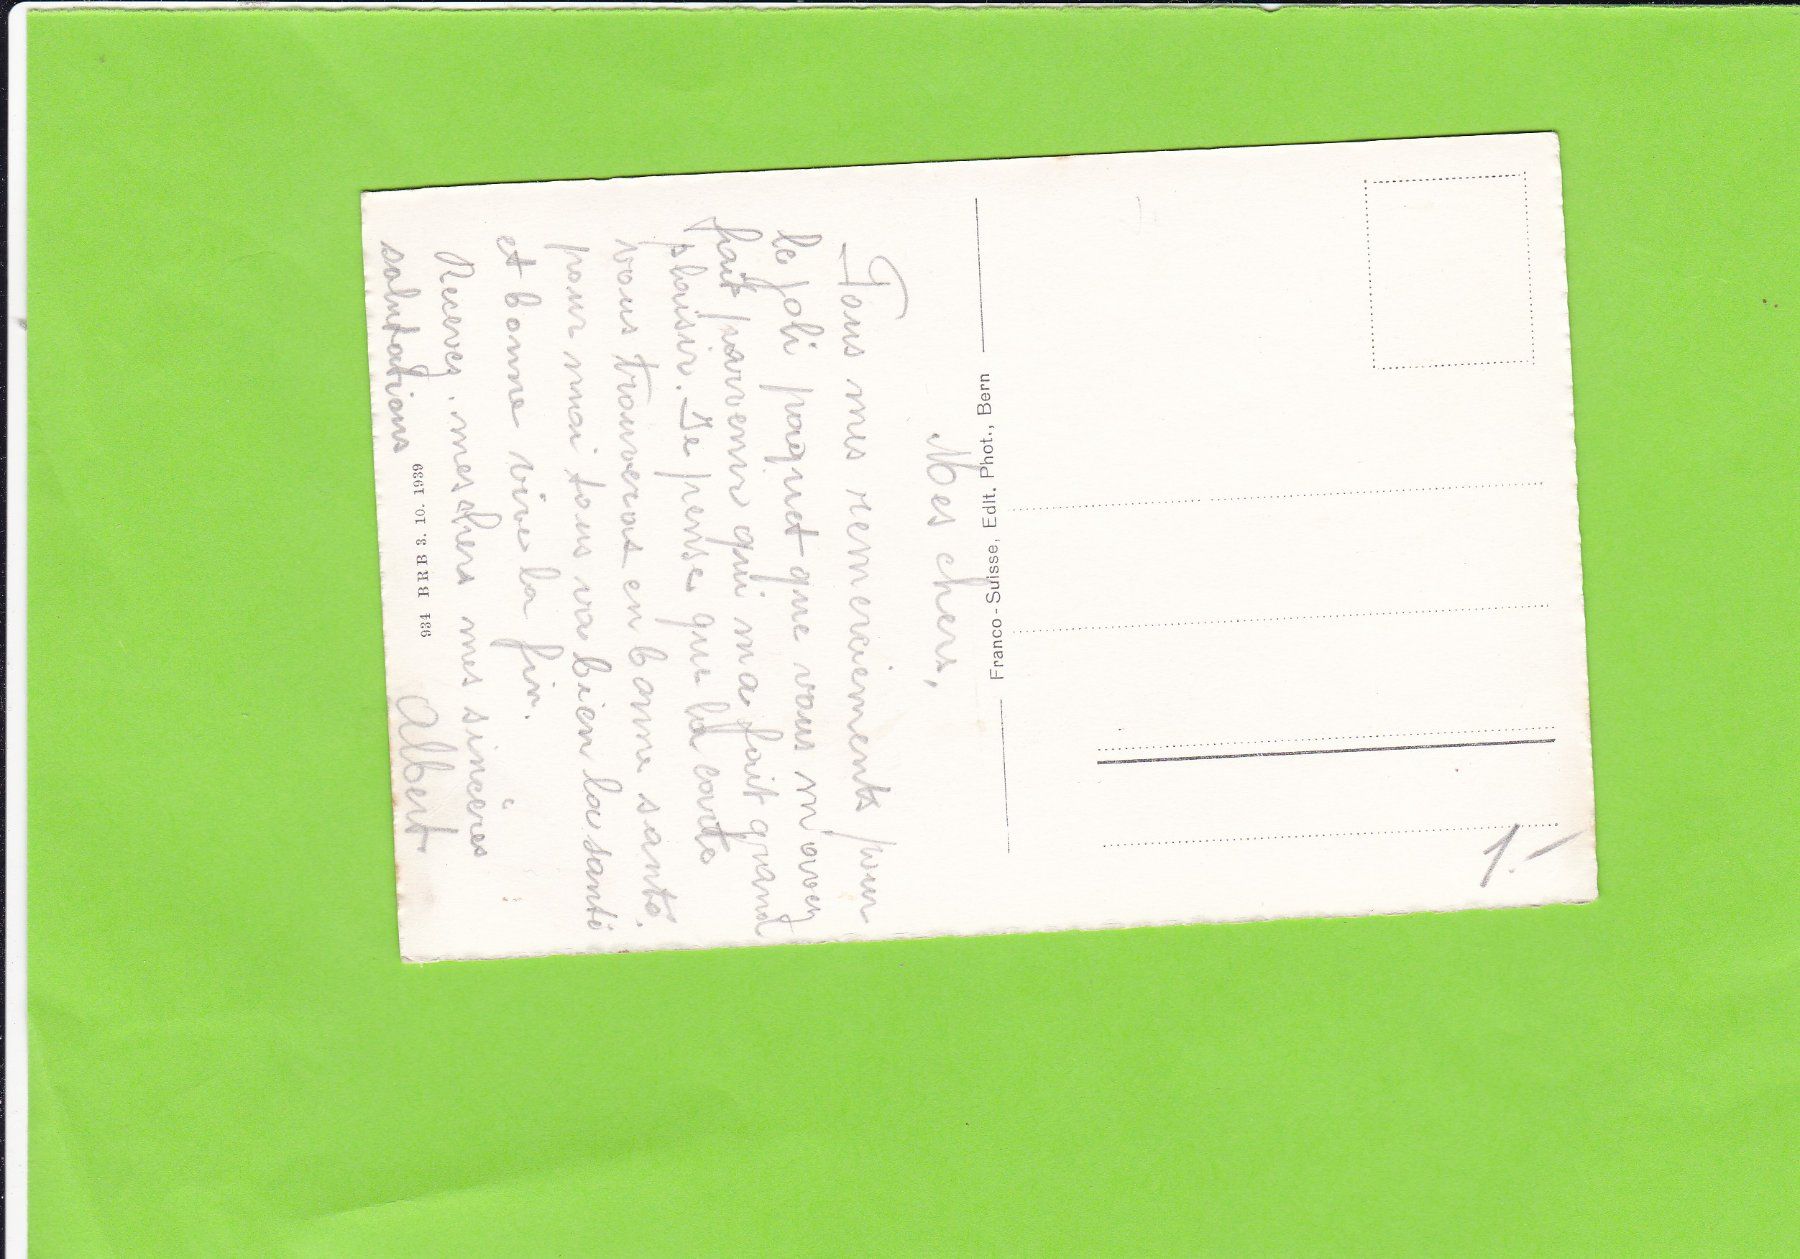 Mes chers,
Tous mes remerciements pour
le joli paquet que vous m'avez
fait parvenir qui ma fait grand
plaisir. Je pense que la carte
vous trouveras en bonne santé.
pour moi tous va bien la santé
et bonne vive la fin.
Recevez, mes chers mes sincères
salutations
Albert
934 BRB 3. 10. 1939
Franco-Suisse, Edit. Phot., Bern
1.-